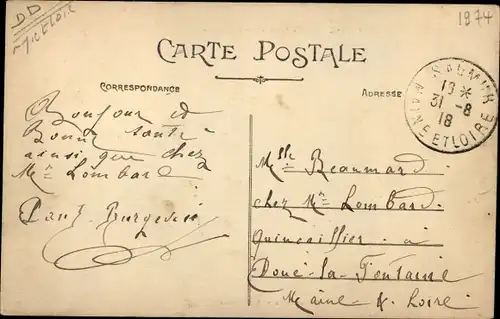 DD
M & LOIR
1974
CARTE POSTALE
CORRESPONDANCE
ADRESSE
SAUMUR
19 *
31 - 8
18
MAINE ET LOIRE
Bonjour et
Bonne Santé
ainsi que chez
Mr Lombard
Paul Burgevin
Mlle Beaumard
chez Mr Lombard
Quincaillier à
Doué-la-Fontaine
Maine & Loire